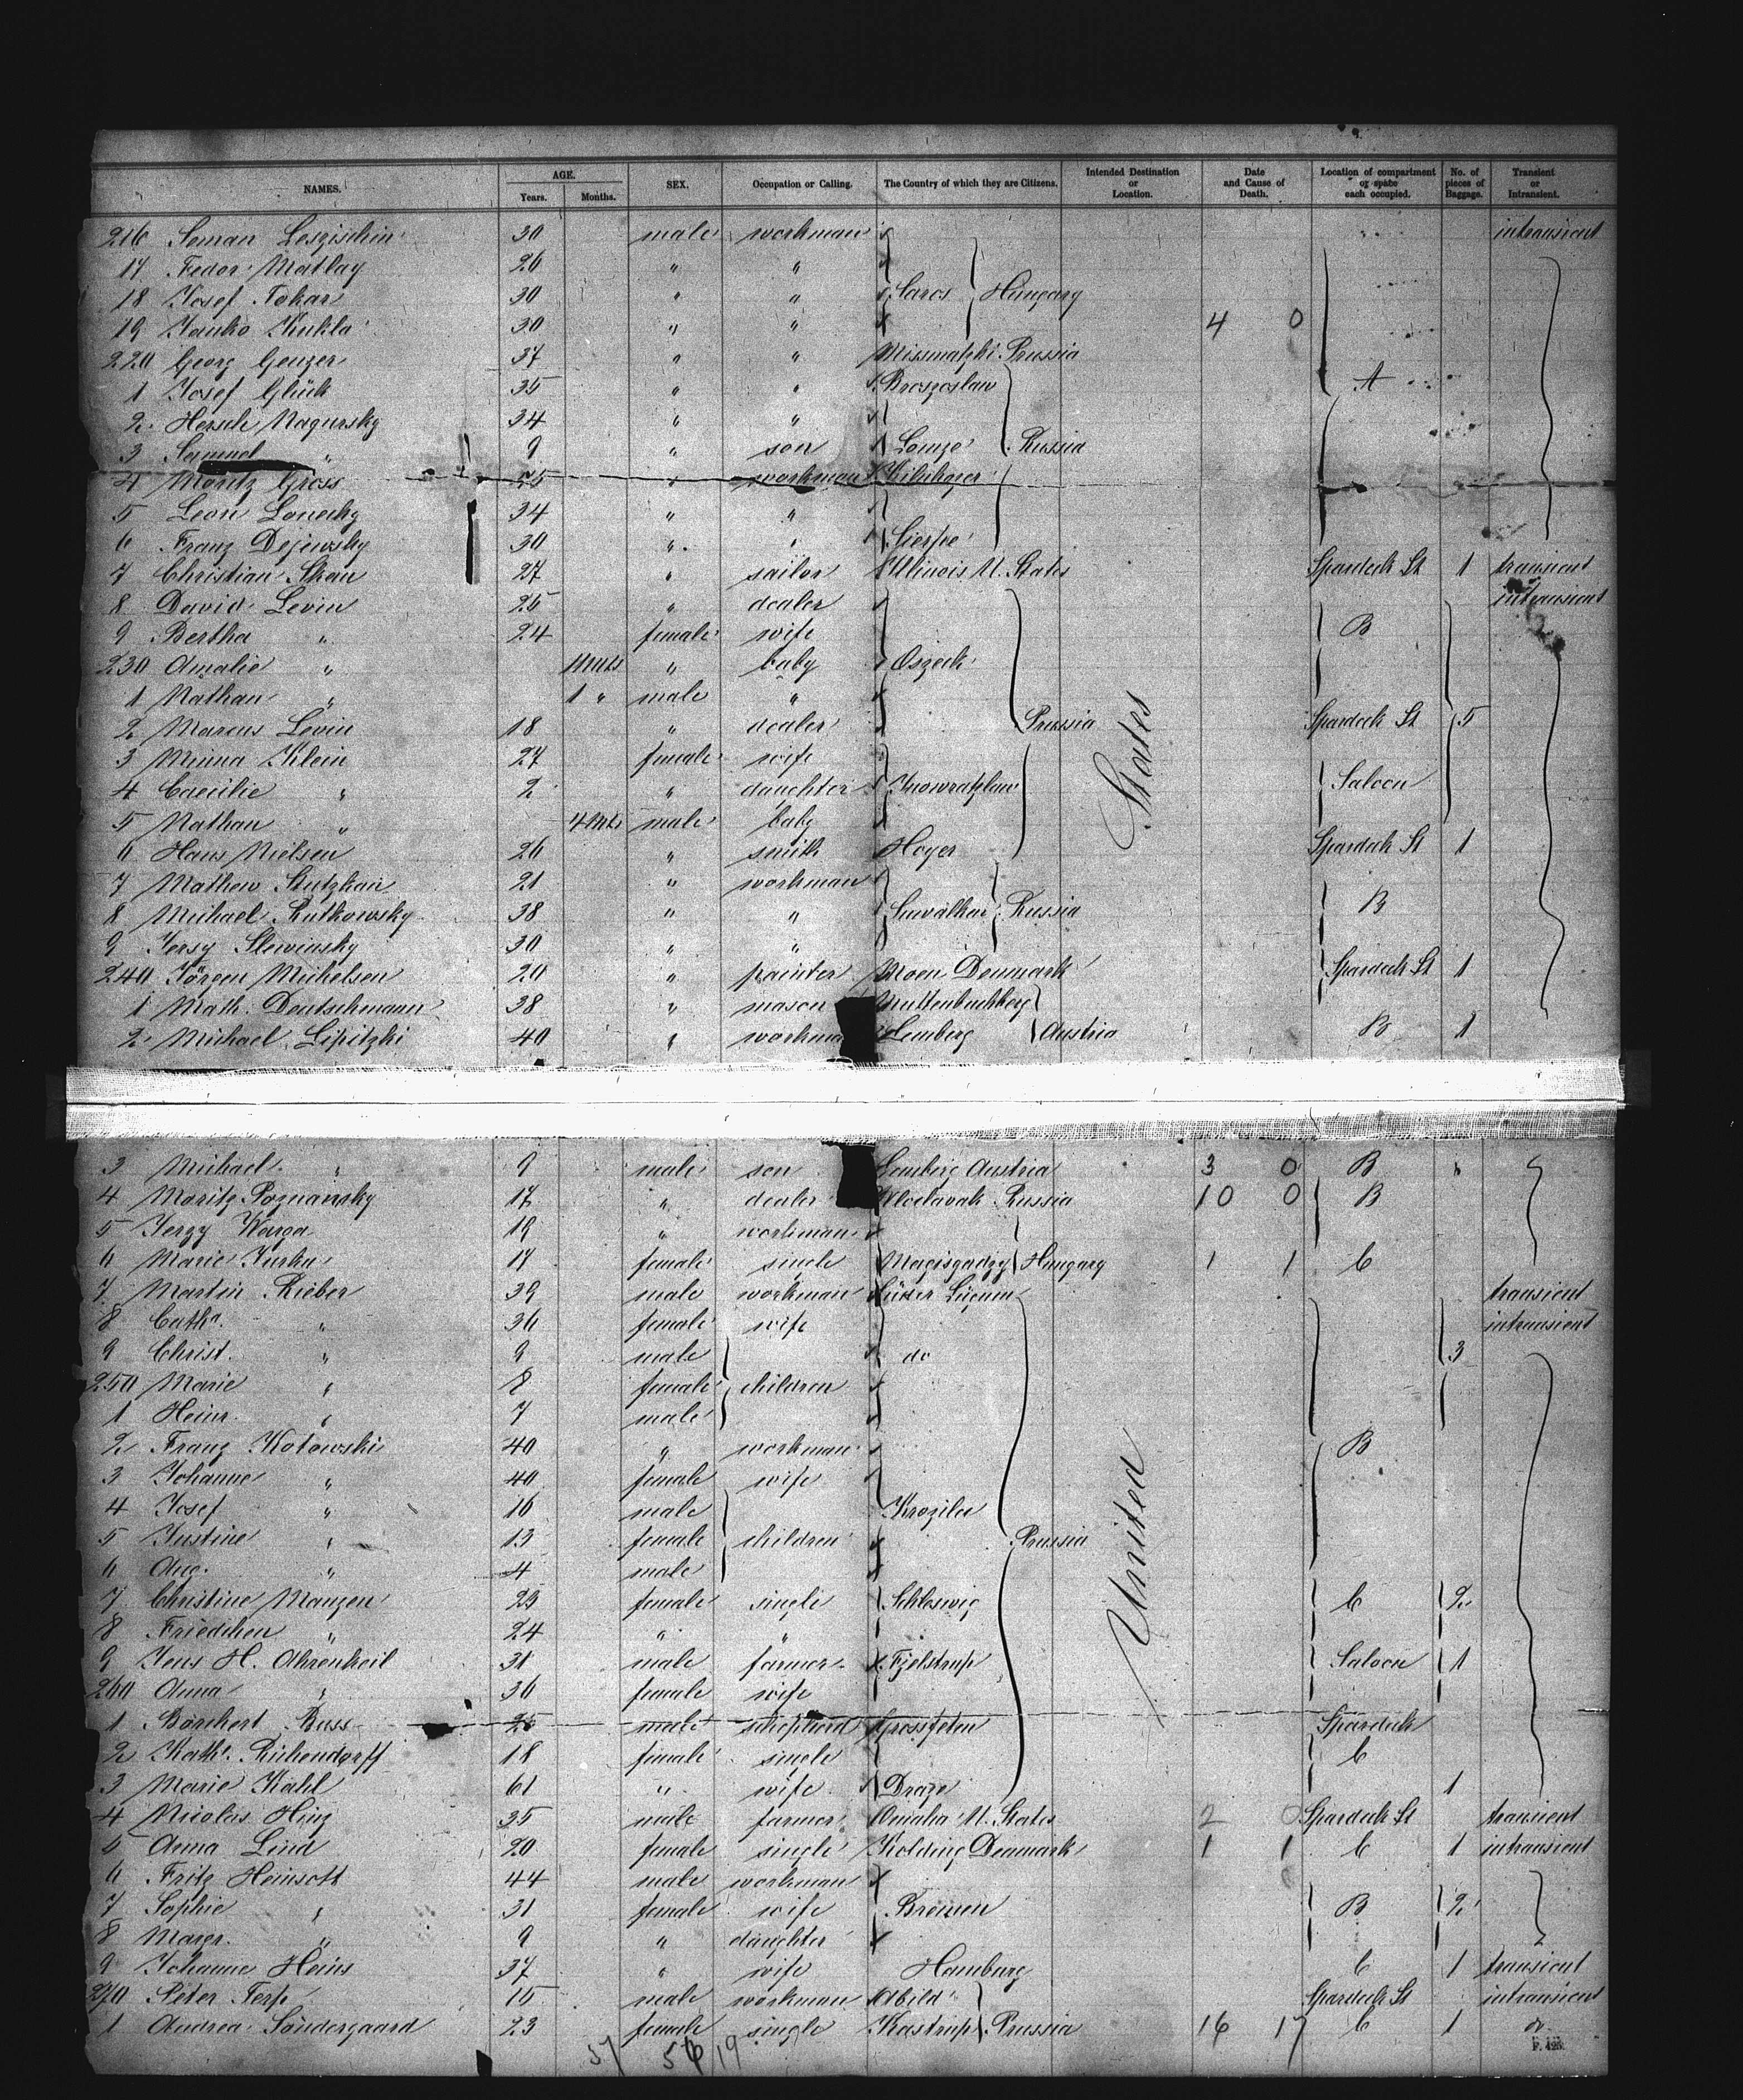 NAMES. AGE. Years. Months. SEX. Occupation or Calling. The Country of which they are Citizens. Intended Destination or Location. Date and Cause of Death. Location of compartment or space each occupied. No. of pieces of Baggage. Transient or Intransient.
216 Seman Leszischin 30 male workman intransient
17 Fedor Matlay 26 " "
18 Josef Tokar 30 " " Saros Hungary
19 Janko Kukla 30 " " 4 0
220 Georg Genzer 37 " " Prussia
1 Josef Glück 35 " " A
2 Hersch Nagursky 34 " "
3 Samuel " 9 " son Lomze Russia
4 Moritz Gross 25 " workman
5 Leon 34 " "
6 Franz Dejewsky 30 " " Sierpe
7 Christian 27 " sailor Illinois U. States Spardeck St 1 transient
8 David Levin 25 " dealer intransient
9 Bertha " 24 female wife B
230 Amalie " 11 mts " baby Oszeck
1 Nathan " 1 " male "
2 Marcus Levin 18 " dealer Prussia Spardeck St 5
3 Minna Klein 27 female wife
4 Caecilie " 2 " daughter Inowratzlaw Saloon
5 Nathan " 4 mts male baby
6 Hans Nielsen 26 " smith Hoyer Spardeck St 1
7 Mathew Stutzkan 21 " workman
8 Michael Rutkowsky 38 " " Suwalkow Russia B
9 Jersy Slewinsky 30 " "
240 Jörgen Michelsen 20 " painter Moen Denmark Spardeck St 1
1 Math. Deutschmann 38 " mason
2 Michael Lipitzki 40 " workma Lemberg Austria B 1
States
3 Michael " 9 male son Lemberg Austria 3 0 B "
4 Moritz Poznansky 17 " dealer Wloclavak Russia 10 0 B
5 Jerzy Warga 19 " workman
6 Marie Jurka 17 female single Hungary 1 1 C
7 Martin Rieber 39 male workman transient
8 Catha. " 36 female wife intransient
9 Christ. " 9 male do 3
250 Marie " 8 female children
1 Heinr. " 7 male
2 Franz Kotowski 40 " workman B
3 Johanne " 40 female wife
4 Josef " 16 male
5 Justine " 13 female children Prussia
6 Aug. " 4 male
7 Christine Manzen 23 female single Schleswig C 2
8 Friedchen " 24 " "
9 Jens H. Ahrenkeil 31 male farmer Fjelstrup Saloon 1
260 Anna " 36 female wife
1 Borchert Buss 25 male shepherd Spardeck
2 Kath. Richendorff 18 female single C
3 Marie Kahl 61 " wife Draze 1
4 Nicolas Hinz 35 male farmer Omaha U. States 2 0 Spardeck St transient
5 Anna Lind 20 female single Kolding Denmark 1 1 C 1 intransient
6 Fritz Heinsott 44 male workman
7 Sophie " 31 female wife Bremen B 2
8 Margr. " 9 " daughter
9 Johanne Heins 37 " wife Hamburg C 1 transient
270 Peter Terp 15 male workman Abild Spardeck St intransient
1 Andrea Söndergaard 23 female single Kastrup Prussia 16 17 C 1 do
United
37 56/19
F. 425.